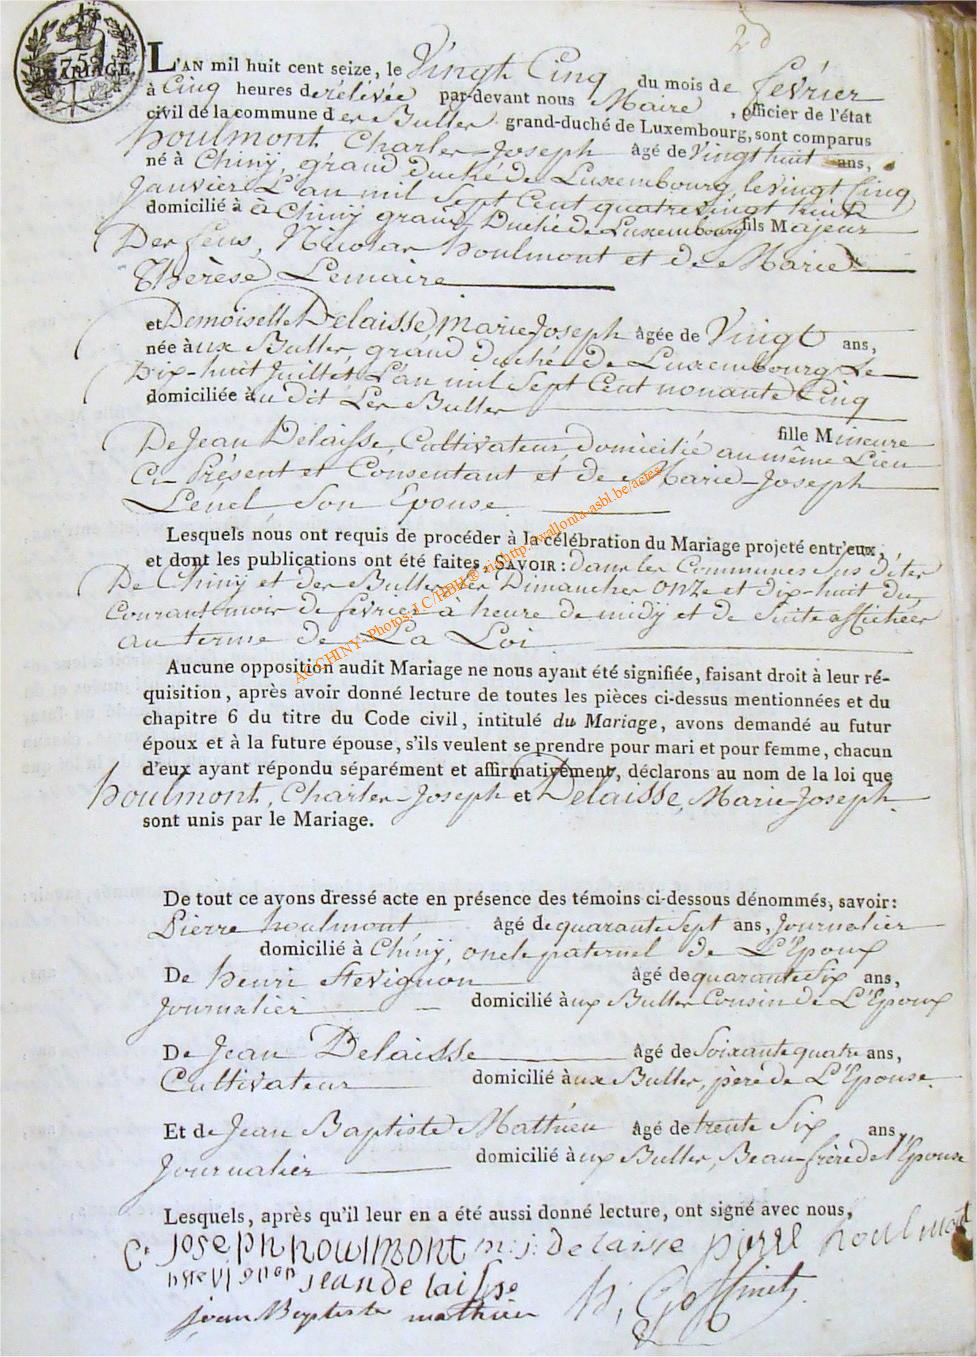 2d
752
MARIAGE
L'AN mil huit cent seize, le Vingt Cinq du mois de février
à Cinq heures de relévée par-devant nous Maire, officier de l'état
civil de la commune des Bulles grand-duché de Luxembourg, sont comparus
houlmont, Charles-Joseph âgé de Vingt huit ans,
né à Chiny, grand duché de Luxembourg, le vingt Cinq
Janvier L'an mil Sept Cent quatrevingt huit
domicilié à à Chiny grand Duché de Luxembourg fils Majeur
Des feus, Nicolas houlmont et de Marie
Thérèse Lemaire
et Demoiselle Delaisse, Marie Joseph âgée de Vingt ans,
née àux Bulles, grand duché de Luxembourg Le
Dix-huit Juillet L'an mil Sept Cent nonante Cinq
domiciliée àu dit Les Bulles
fille Mineure
De Jean Delaisse, Cultivateur, domicilié au même Lieu
Ci-Présent et Consentant et de Marie-Joseph
Lenel, Son Epouse.
Lesquels nous ont requis de procéder à la célébration du Mariage projeté entr'eux,
et dont les publications ont été faites, SAVOIR: dans les Communes Sus dites
De Chiny et des Bulles les Dimanches onze et dix-huit du
Courant mois de février à heure de midy et de Suite affichées
au terme de La Loi
AC CHINY -Photos J.C/RBH© - http://wallonia-asbl.be/actes
Aucune opposition audit Mariage ne nous ayant été signifiée, faisant droit à leur ré-
quisition, après avoir donné lecture de toutes les pièces ci-dessus mentionnées et du
chapitre 6 du titre du Code civil, intitulé du Mariage, avons demandé au futur
époux et à la future épouse, s'ils veulent se prendre pour mari et pour femme, chacun
d'eux ayant répondu séparément et affirmativement, déclarons au nom de la loi que
houlmont, Charles-Joseph et Delaisse, Marie-Joseph
sont unis par le Mariage.
De tout ce avons dressé acte en présence des témoins ci-dessous dénommés, savoir:
Pierre houlmont, âgé de quarante Sept ans, Journalier
domicilié à Chiny, oncle paternel de L'Epoux
De henri Stevignon âgé de quarante Six ans,
Journalier domicilié àux Bulles Cousin de L'Epoux
De Jean Delaisse âgé de Soixante quatre ans,
Cultivateur domicilié àux Bulles, père de L'Epouse.
Et de Jean Baptiste Mathieu âgé de trente Six ans,
Journalier domicilié àux Bulles, Beau-frère de l'Epouse
Lesquels, après qu'il leur en a été aussi donné lecture, ont signé avec nous,
Cs Joseph houlmont m: j: delaisse pierre houlmont
h stevignon jean de laisse
jean Baptiste mathieu h, Goffinet